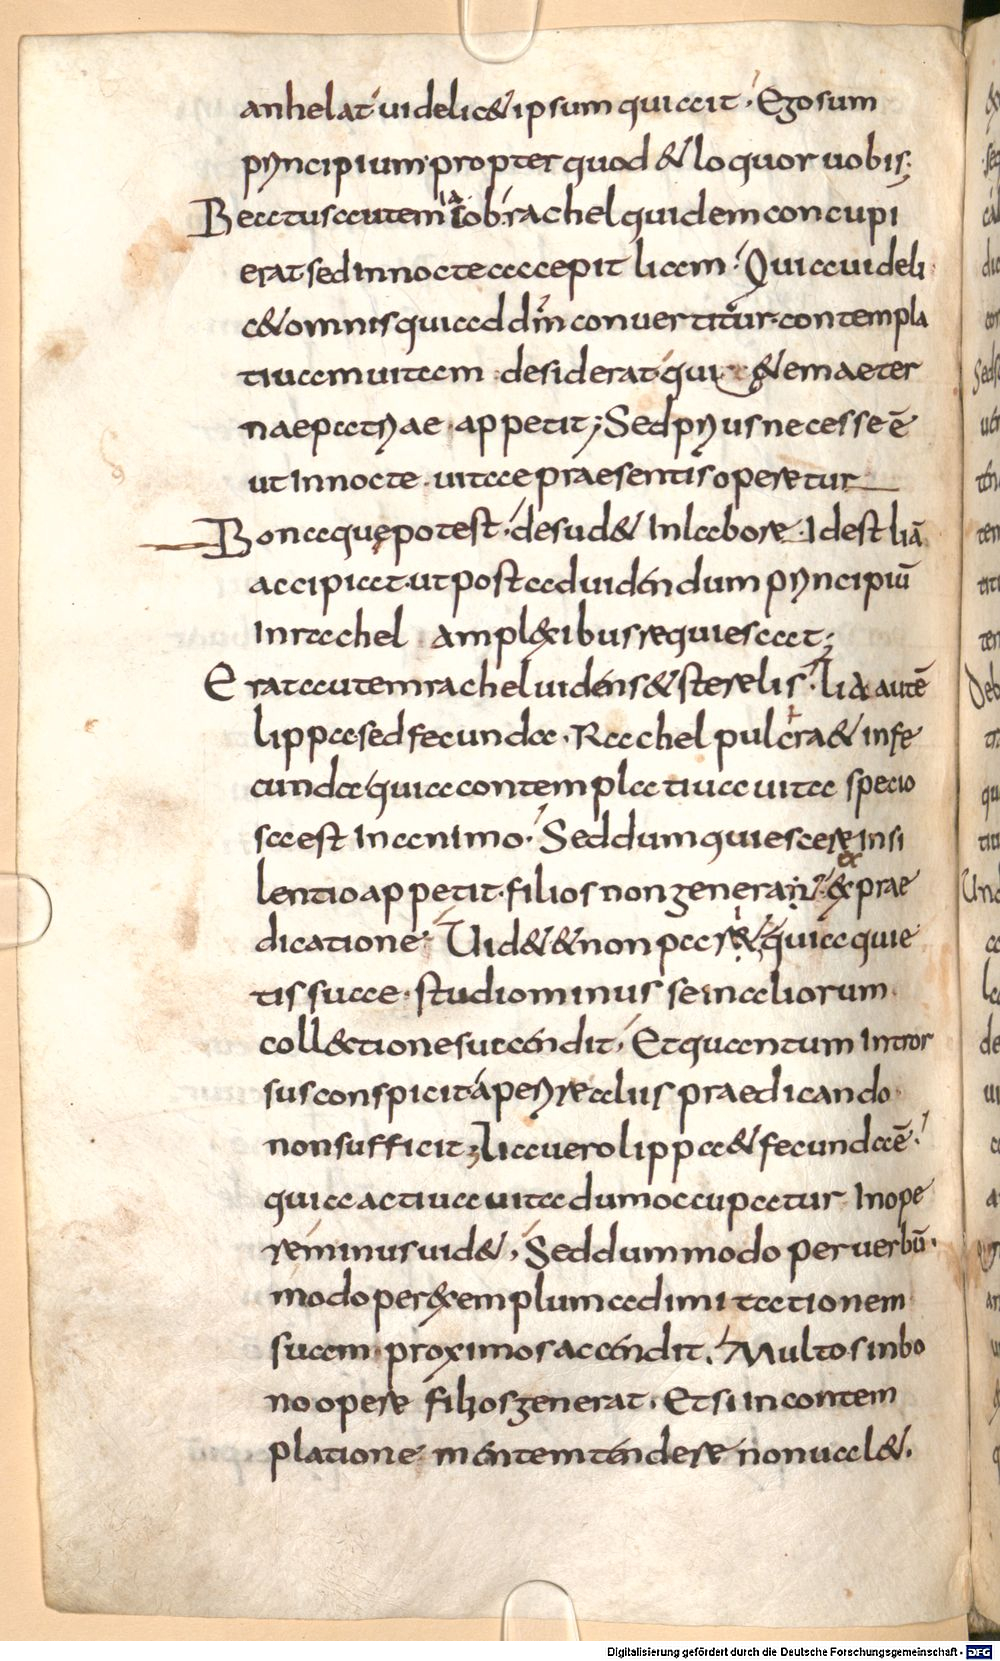 anhelat uidelic& ipsum qui ait · Ego sum
principium · propter quod & loquor uobis;
Beatus autem iacob · rachel quidem concupi
erat · sed in nocte accepit liam · Quia uideli
c& omnis qui ad dm̄ conuertitur · contempla
tiuam uitam desiderat · qui&em aeter
nae patriae appetit; Sed prius necesse ē
ut in nocte uitae praesentis operetur
Bona que potest · desud& in labore · Id est liā
accipiat ut post ad uidendum principiū
in rachel amplexibus requiescat;
Erat autem rachel uidens & sterelis · lia autē
lippa · sed fecunda · Rachel pulcra & infe
cunda · quia contemplatiua uita specio
sa est in animo · Sed dum quiescere in si
lentio appetit · filios non generat ex prae
dicatione · Uid& & non parit · quia quie
tis suae · studio minus se in aliorum
coll&tione succendit · Et quantum intror
sus conspicit aperire aliis praedicando
non sufficit; Lia uero lippa & fecunda ē ·
quia actiua uita dum occupatur in ope
re minus uid& · Sed dum modo per uerbū ·
modo per exemplum ad imitationem
suam proximos accendit · Multos in bo
no opere filios generat · Et si in contem
platione mentem tendere non ual& ·
Digitalisierung gefördert durch die Deutsche Forschungsgemeinschaft - DFG